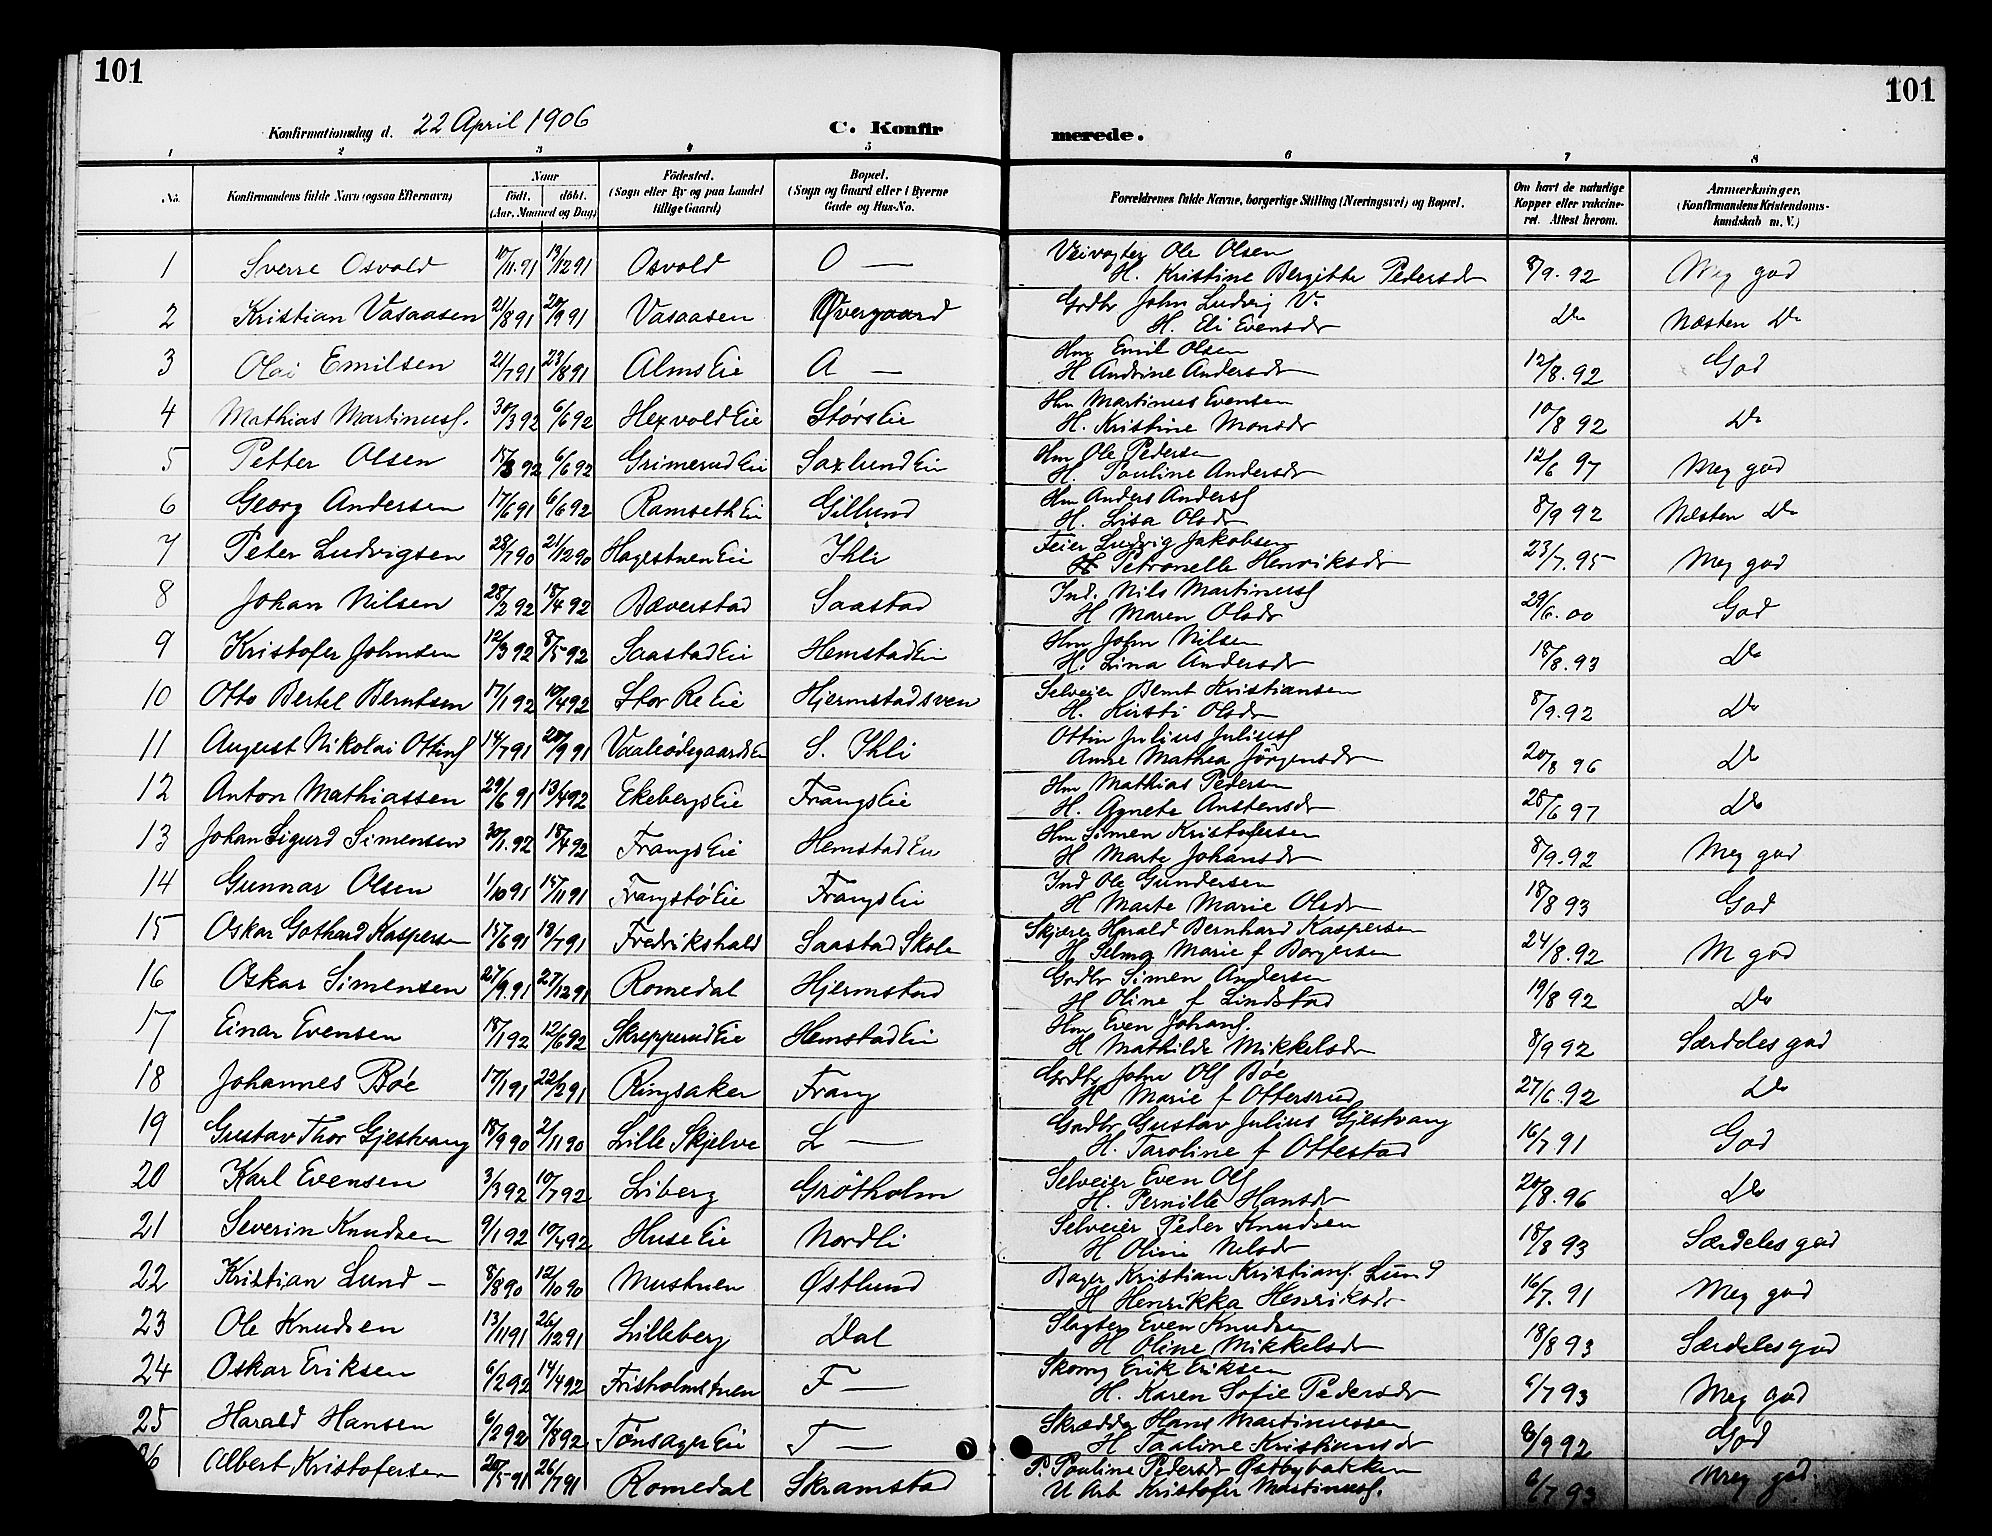 101
101
Konfirmationsdag d. 22 April 1906
C. Konfirmerede.
1 2 3 4 5 6 7 8
No.
Konfirmandens fulde Navn (ogsaa Efternavn)
Naar
født. døbt.
(Aar, Maaned og Dag)
Fødested.
(Sogn eller By og paa Landet tillige Gaard)
Bopæl.
(Sogn og Gaard eller i Byerne Gade og Hus-No.
Forældrenes fulde Navne, borgerlige Stilling (Næringsvei) og Bopæl.
Om havt de naturlige Kopper eller vaccineret. Attest herom.
Anmærkninger.
(Konfirmandens Kristendomskundskab m. V.)
1 Sverre Osvold 10/11.91 19/12 91 Osvold O — Veivogter Ole Olsen
H. Kristine Bergitte Pedersdr 8/9.92 Meg god
2 Kristian Vasaasen 21/8 91 20/9 91 Vasaasen Øvergaard Grdbr John Ludvig V.
H. Eli Evensdr Do Næsten Do
3 Olai Emilsen 21/7 91 23/8 91 Alms Eie A — Hm Emil Olsen
H Andrine Andersdr 12/8.92 God
4 Mathias Martinusf. 30/3 92 6/6 92 Hexvold Eie Størs Eie Hm Martinus Evensen
H. Kristine Monsdr 10/8 92 Do
5 Petter Olsen 15/3 92 6/6 92 Grimerud Eie Saxlund Eie Hm Ole Pedersen
H. Pauline Andersdr 12/6 97 Meg god
6 Georg Andersen 17/6 91 6/6 92 Ramseth Eie Gillund Hm Anders Andersf
H. Lisa Olsdr 8/9 92 Næsten Do
7 Peter Ludvigsen 28/7 90 21/12 90 Hagestuen Eie Ihli Feier Ludvig Jakobsen
H Petronelle Henriksdr 23/7.95 Meg god
8 Johan Nilsen 28/2 92 18/4 92 Bæverstad Saastad Ind. Nils Martinusf
H Maren Olsdr 29/6.00 God
9 Kristofer Johnsen 12/3 92 8/5 92 Saastad Eie Hemstad Eie Hm John Nilsen
H. Lina Andersdr 18/8.93 Do
10 Otto Bertel Berntsen 17/1 92 10/4 92 Stor Re Eie Hjermstadsven Selveier Bernt Kristiansen
H. Kirsti Olsdr 8/9.92 Do
11 August Nikolai Ottinf 14/7 91 20/9 91 Vaaleødegaards Eie S. Ihli Ottin Julius Juliusf
Anne Mathea Jörgensdr 20/8 96 Do
12 Anton Mathiassen 29/6 91 13/4 92 Ekebergs Eie Frangs Eie Hm Mathias Pedersen
H. Agnete Anstensdr 28/6 97 Do
13 Johan Sigurd Simensen 30/1.92 18/4 92 Frangs Eie Hemstad Eie Hm Simen Kristofersen
H Marte Johansdr 8/9.92 Meg god
14 Gunnar Olsen 1/10 91 15/11 91 Frangstø Eie Frangs Eie Ind Ole Gundersen
H Marte Marie Olsdr 18/8 93 God
15 Oskar Gothard Kaspersen 15/6 91 18/7 91 Fredrikshald Saastad Skole Skjærer Harald Bernhard Kaspersen
H Selma Marie f Borgersen 24/8.92 M god
16 Oskar Simensen 27/9.91 27/12 91 Romedal Hjermstad Grdbr Simen Andersen
H Oline f Lindstad 19/8 92 Do
17 Einar Evensen 18/1 92 12/6 92 Skrepperud Eie Hemstad Eie Hm Even Johansf.
H Mathilde Mikkelsdr 8/9 92 Særdeles god
18 Johannes Bøe 17/1 91 22/2 91 Ringsaker Frang Grdbr John Olsf Bøe
H Marie f Ottersrud 27/6.92 Do
19 Gustav Thor Gjestvang 18/9 90 2/11 90 Lille Skjelve L — Grdbr Gustav Julius Gjestvang
H. Taroline f Ottestad 16/7 91 God
20 Karl Evensen 3/3 92 10/7 92 Liberg Grötholm Selveier Even Olsf
H. Pernille Hansdr 20/8.96 Do
21 Severin Knudsen 9/1 92 10/4 92 Huse Eie Nordli Selveier Peder Knudsen
H Oline Nilsdr 18/8 93 Særdeles god
22 Kristian Lund — 8/8 90 12/10 90 Mustuen Østlund Bager Kristian Kristiansf. Lund
H Henrikka Henriksdr 16/7.91 Meg god
23 Ole Knudsen 13/11 91 26/12 91 Lilleberg Dal Slagter Even Knudsen
H Oline Mikkelsdr 18/8 93 Særdeles god
24 Oskar Eriksen 6/2 92 14/4 92 Frisholmstuen F — Skomg Erik Eriksen
H. Karen Sofie Pedersdr 6/7 93 Meg god
25 Harald Hansen 6/2 92 7/8 92 Tønsager Eie T — Skrædder Hans Martinussen
H Tauline Kristiansdr 8/9 92 God
26 Albert Kristofersen 20/5 91 26/7 91 Romedal Skramstad P. Pauline Pedersdr Østbybakken
U Arb Kristofer Martinusf. 6/7 93 Meg god